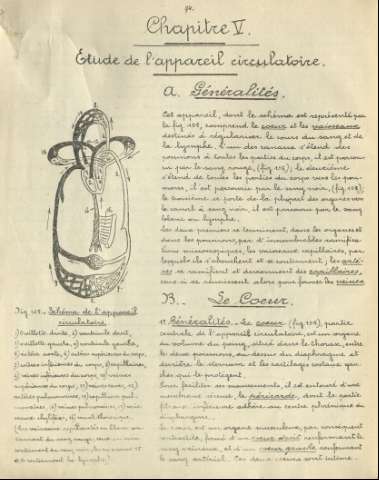 94.
Chapitre V.
Étude de l'appareil circulatoire.
A. Généralités.
Cet appareil, dont le schéma est représenté par
la fig 108, comprend le coeur et les vaisseaux
destinés à régulariser le cours du sang et de
la lymphe. L'un des réseaux s'étend des
poumons à toutes les parties du corps, il est parcou-
ru par le sang rouge, (fig 108); le deuxième
s'étend de toutes les parties du corps vers les pou-
mons, il est parcouru par le sang noir, (fig 108);
le troisième se porte de la plupart des organes vers
le canal à sang noir, il est parcouru par le sang
blanc ou lymphe.
Les deux premiers se terminent, dans les organes et
dans les poumons, par d'innombrables ramifica-
tions microscopiques, les vaisseaux capillaires, par
lesquels ils s'abouchent et se continuent; les artè-
res se ramifient et deviennent des capillaires,
ceux-ci se réunissent alors pour former les veines
Fig 108. Schéma de l'appareil
circulatoire.
1) oreillette droite, 2) ventricule droit,
3) oreillette gauche, 4) ventricule gauche,
5) artère aorte, 6) artères supérieures du corps,
7) artères inférieures du corps, 8) capillaires,
9) veines inférieures du corps, 10) veines
supérieures du corps,
artères pulmonaires,
B. Le Coeur.
1º Généralités. Le coeur (fig 109), partie
centrale de l'appareil circulatoire, est un organe
du volume du poing, situé dans le thorax, entre
les deux poumons, au dessus du diaphragme et
derrière le sternum et les cartilages costaux gau-
ches qui le protègent.
Pour faciliter ses mouvements, il est entouré d'une
membrane séreuse, le péricarde, dont la partie
fibreuse inférieure adhère au centre phrénique du
diaphragme.
Le coeur est un organe musculeux, par conséquent
contractile, formé d'un coeur droit renfermant le
sang veineux, et d'un coeur gauche renfermant
le sang artériel. Ces deux coeurs sont intime-